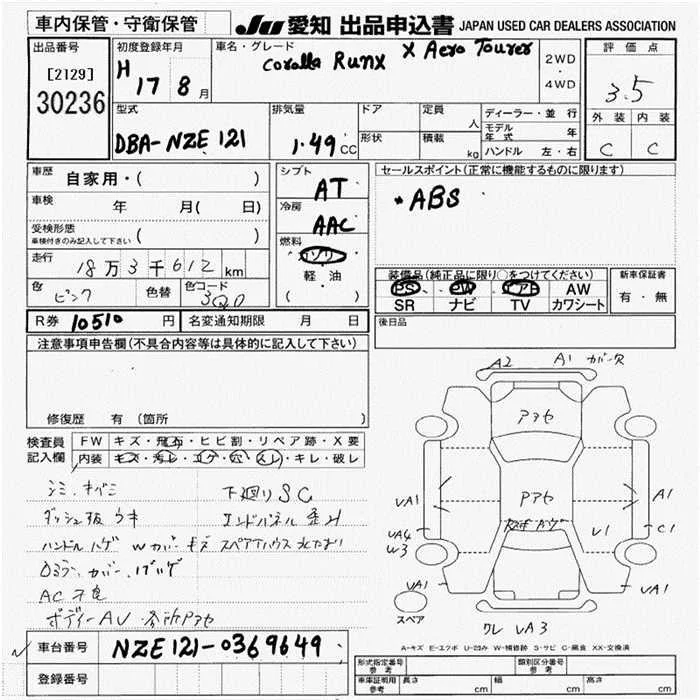 車内保管・守衛保管
JU 愛知 出品申込書 JAPAN USED CAR DEALERS ASSOCIATION
出品番号
[2129]
30236
初度登録年月
H 17 8月
車名・グレード
Corolla Runx X Aero Tourer
2WD
・
4WD
評価点
3.5
外装 内装
C C
型式
DBA-NZE 121
排気量
1.49 CC
ドア
形状
定員
人
積載
kg
ディーラー・並行
モデル年式 年
ハンドル 左・右
車歴
自家用・( )
車検
年 月( 日)
受検形態
車検付きのみ記入して下さい ( )
走行
18万3千612 km
色
ピンク
色替
色コード
3Q0
シフト
AT
冷房
AAC
燃料
ガソリン
軽・油
( )
セールスポイント(正常に機能するものに限ります)
・ABS
装備品(純正品に限り○をつけてください)
PS PW エアB AW
SR ナビ TV カワシート
新車保証書
有・無
R券 10510 円
名変通知期限 月 日
後日品
注意事項申告欄(不具合内容等は具体的に記入して下さい)
修復歴 有 (箇所 )
検査員
記入欄
FW キズ・飛石・ヒビ割・リペア跡・X要
内装 キズ・汚レ・コゲ・穴・スレ・キレ・破レ
シミ、キバミ
下廻りSC
ダッシュ板ウキ
エンドパネル歪み
ハンドルハゲ Wカバーキズ
スペアハウス
AC不良
ボディーAV 各所アセ
A2
A1 カバー欠
アセ
アセ
VA1
VA4
W3
VA1
A1
C1
V1
VA1
ワレ VA3
スペア
A-キズ E-エクボ U-凹み W-補修跡 S-サビ C-腐食 XX-交換済
車台番号
NZE121-0369649
登録番号
形式指定番号
参考
類別区分番号
参考
車庫証明用
参考
長さ cm
幅 cm
高さ cm